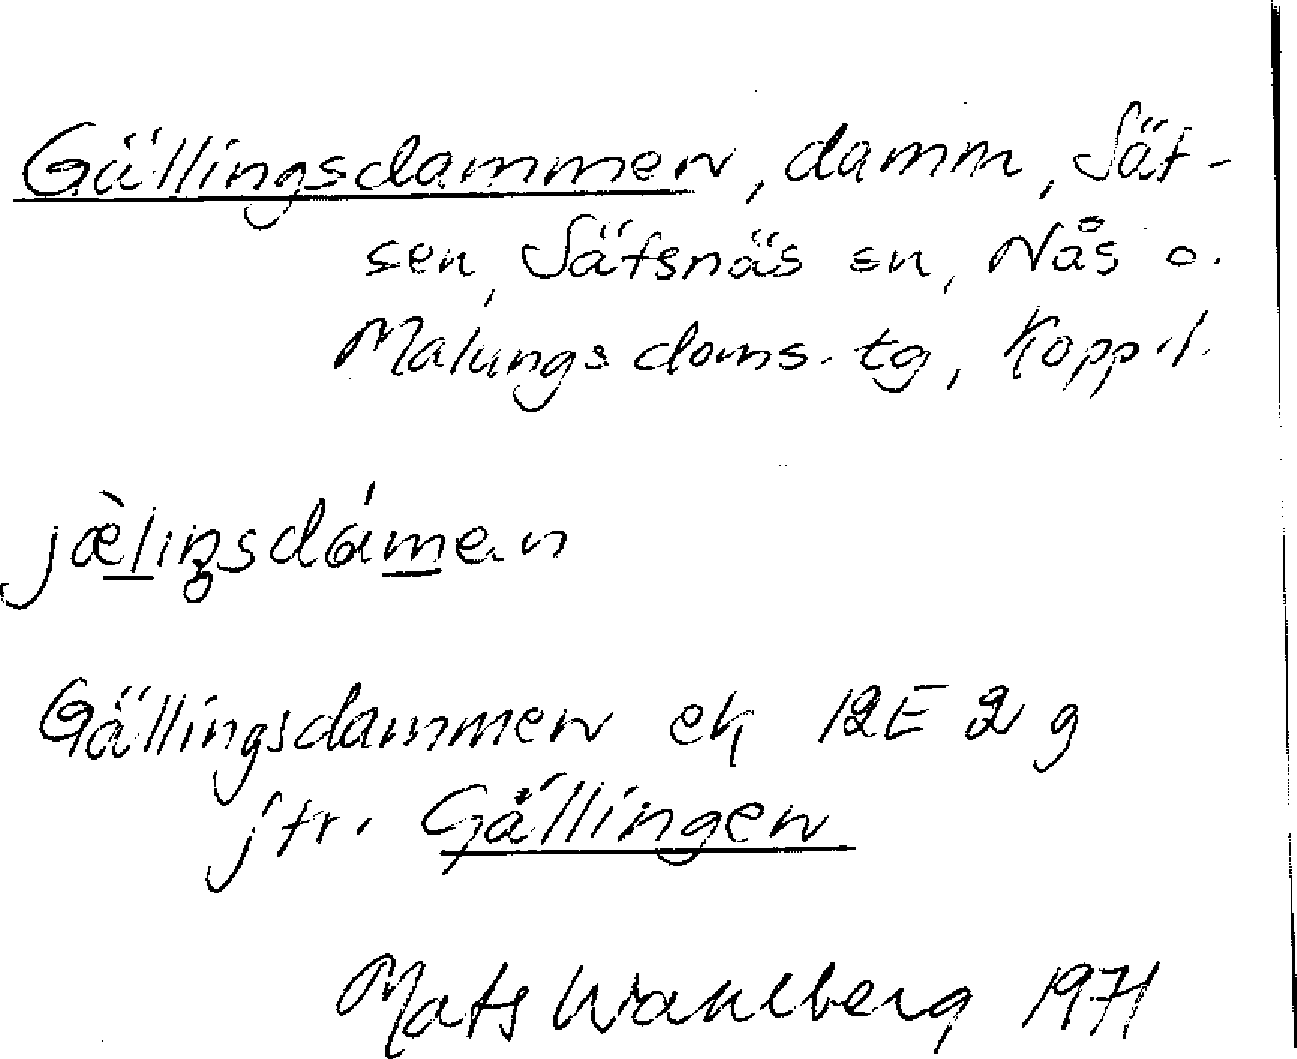 Gällingsdammen, damm, Säf-
sen, Säfsnäs sn, Nås o.
Malungs doms. tg, Kopp. l.
jæ̀lıŋsdámen
Gällingsdammen ek 12E 2 g
jfr. Gällingen
Mats Wahlberg 1971